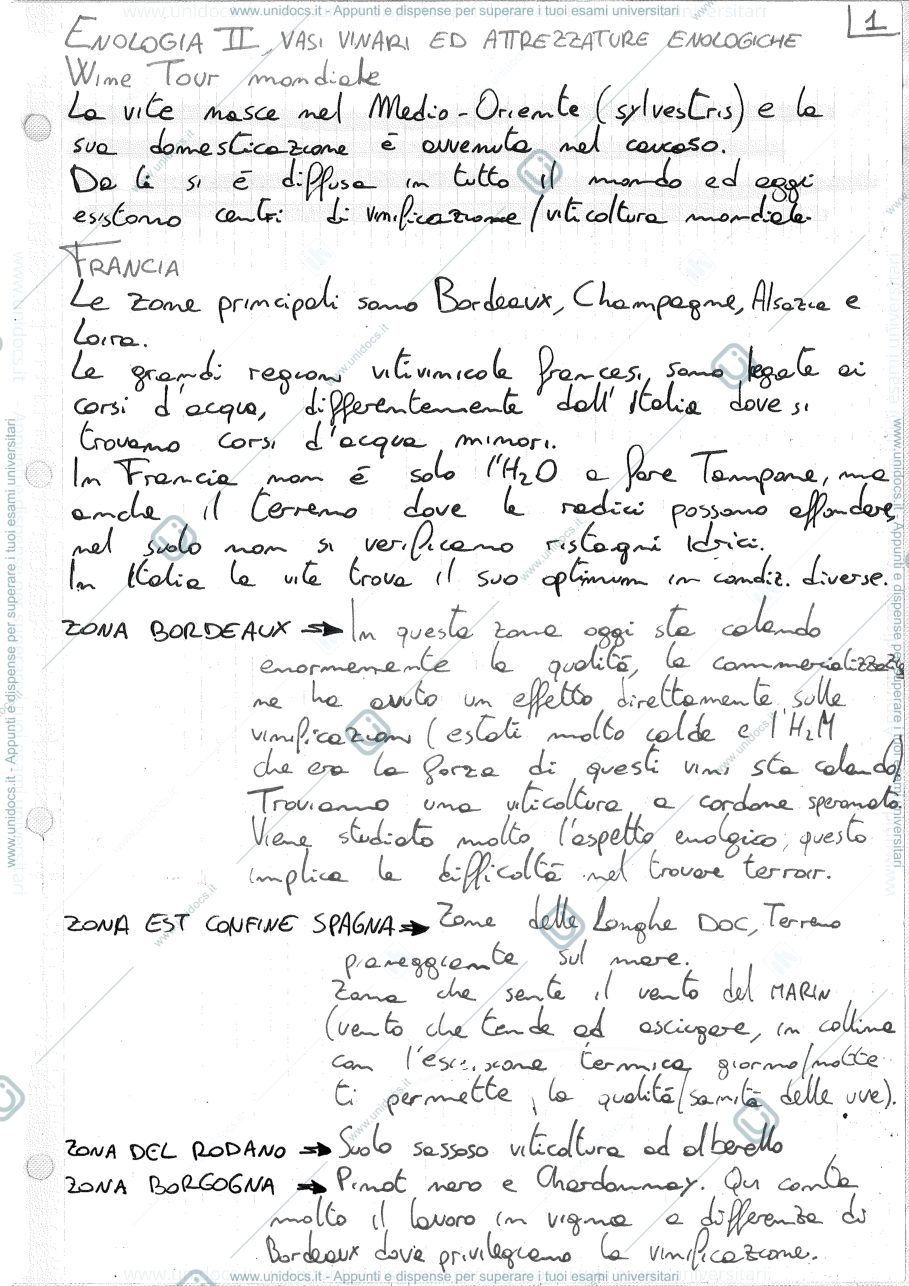 www.unidocs.it - Appunti e dispense per superare i tuoi esami universitari
1
ENOLOGIA II VASI VINARI ED ATTREZZATURE ENOLOGICHE
Wine Tour mondiale
La vite nasce nel Medio-Oriente (sylvestris) e la
sua domesticazione è avvenuta nel caucaso.
Da lì si è diffusa in tutto il mondo ed oggi
esistono centri di vinificazione/viticoltura mondiale.
FRANCIA
Le zone principali sono Bordeaux, Champagne, Alsazia e
Loira.
Le grandi regioni vitivinicole francesi sono legate ai
corsi d'acqua, differentemente dall'Italia dove si
trovano corsi d'acqua minori.
In Francia non è solo l'H2O a fare Tampone, ma
anche il terreno dove le radici possono affondare,
nel suolo non si verificano ristagni idrici.
In Italia la vite trova il suo optimum in condiz. diverse.
ZONA BORDEAUX → In questa zona oggi sta calando
enormemente la qualità, la commercializzazio
ne ha avuto un effetto direttamente sulle
vinificazioni (estati molto calde e l'H2M
che era la forza di questi vini sta calando)
Troviamo una viticoltura a cordone speronato.
Viene studiato molto l'aspetto enologico, questo
implica la difficoltà nel trovare terroir.
ZONA EST CONFINE SPAGNA → Zone delle Langhe DOC, Terreno
pianeggiante sul mare.
Zona che sente il vento del MARIN
(vento che tende ad asciugare, in collina
con l'escursione termica giorno/notte
ti permette la qualità/sanità delle uve).
ZONA DEL RODANO → Suolo sassoso viticoltura ad alberello
ZONA BORGOGNA → Pinot nero e Chardonnay. Qui conta
molto il lavoro in vigna a differenza di
Bordeaux dove privilegiano la vinificazione.
www.unidocs.it - Appunti e dispense per superare i tuoi esami universitari